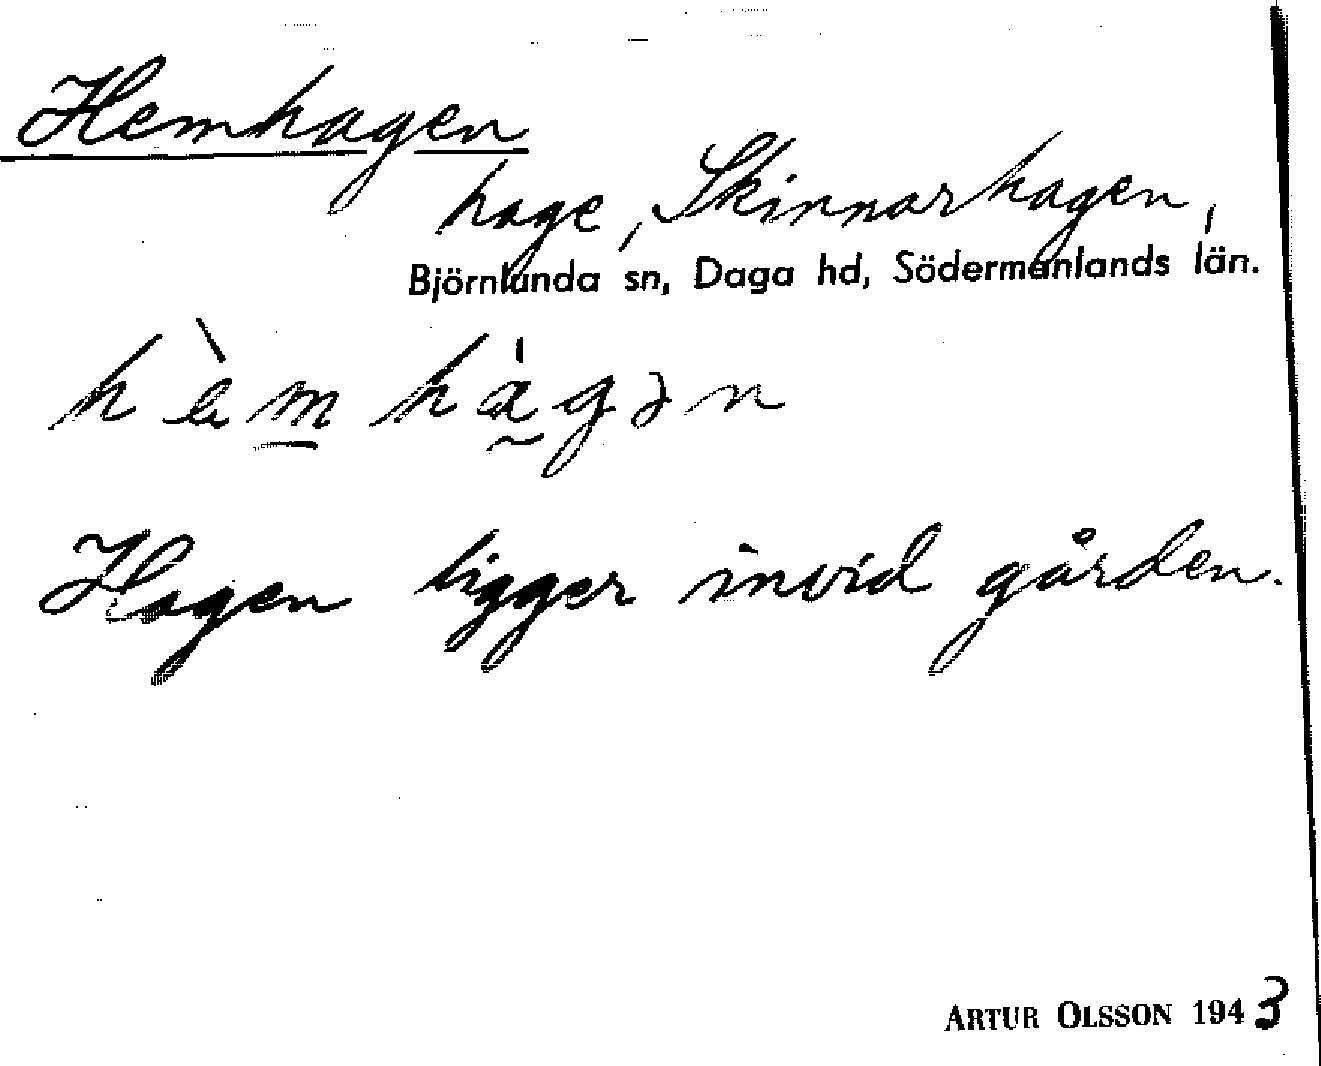 Hemhagen
hage, Skinnarhagen,
Björnlunda sn, Daga hd, Södermanlands län.
hèm hágən
Hagen ligger invid gården.
ARTUR OLSSON 1943